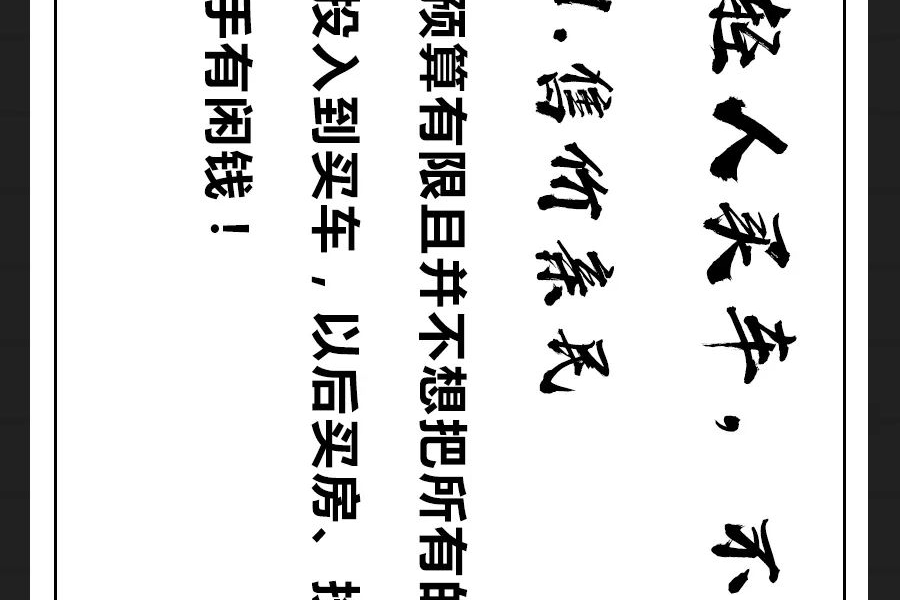 轻人买车，不
售价亲民
预算有限且并不想把所有的
投入到买车，以后买房、
手有闲钱！